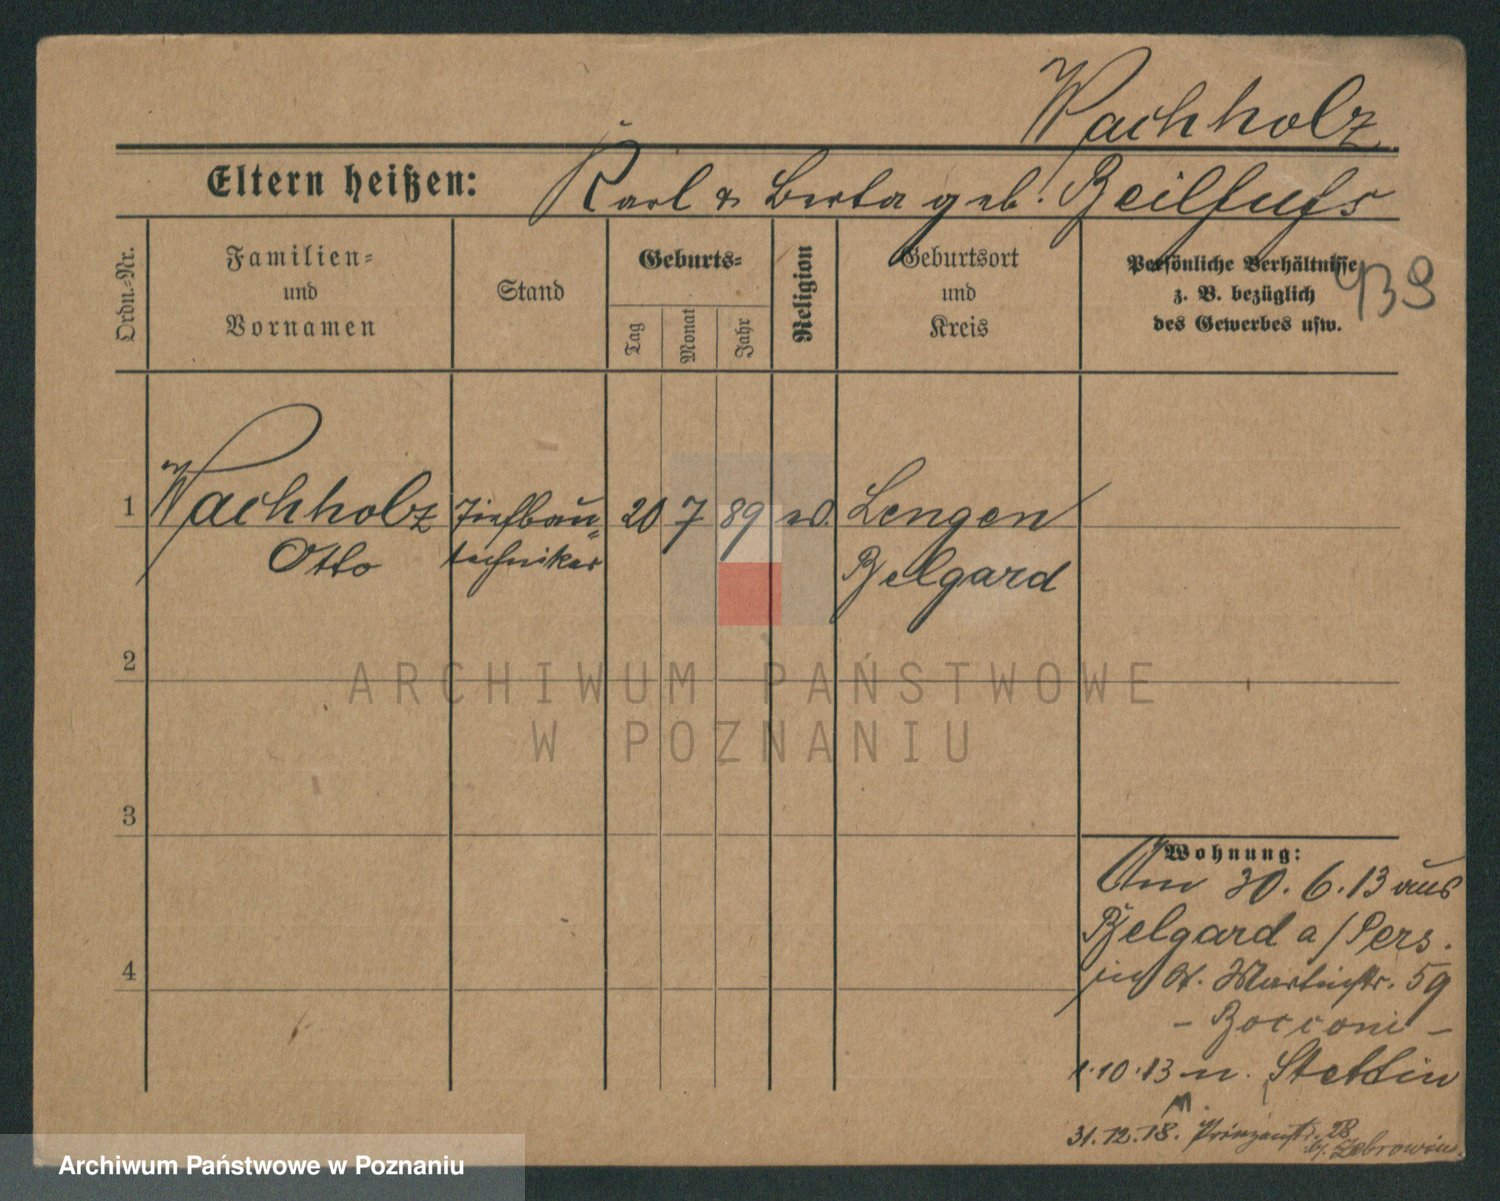 Wachholz
Eltern heißen: Karl & Berta geb. Beilfuß
Ordn.-Nr.
Familien-
und
Vornamen
Stand
Geburts-
Tag
Monat
Jahr
Religion
Geburtsort
und
Kreis
Persönliche Verhältnisse
z. B. bezüglich
des Gewerbes usw.
939
1 Wachholz Tiefbau- 20 7 89 ev. Lengen
Otto techniker Belgard
2
3
4
Wohnung:
Am 30.6.13 aus
Belgard a/Pers.
St. Martinstr. 59
- Bocconi -
1.10.13 n. Stettin
31.12.18. Prinzenstr. 28
ARCHIWUM PAŃSTWOWE
W POZNANIU
Archiwum Państwowe w Poznaniu